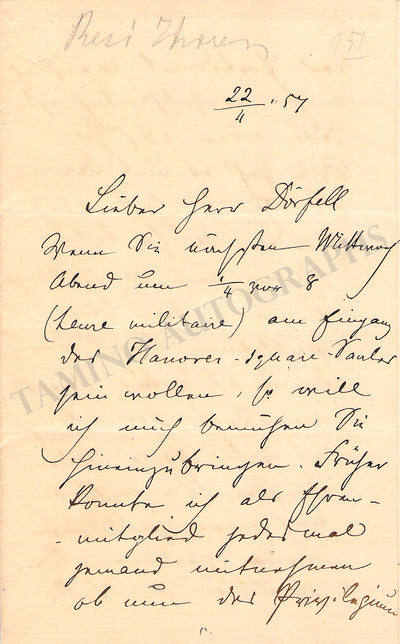 951
22/4. 57
Lieber Herr Dörfell
Wenn Sie nächsten Mittwoch
Abend um 1/4 vor 8
(heure militaire) am Eingang
des Hanover-square-Saales
sein wollen, so will
ich mich bemühen Sie
hineinzubringen. Früher
konnte ich als Ehren-
-mitglied jedesmal
jemand mitnehmen
ob nun das Privilegium
TAMINO AUTOGRAPHS